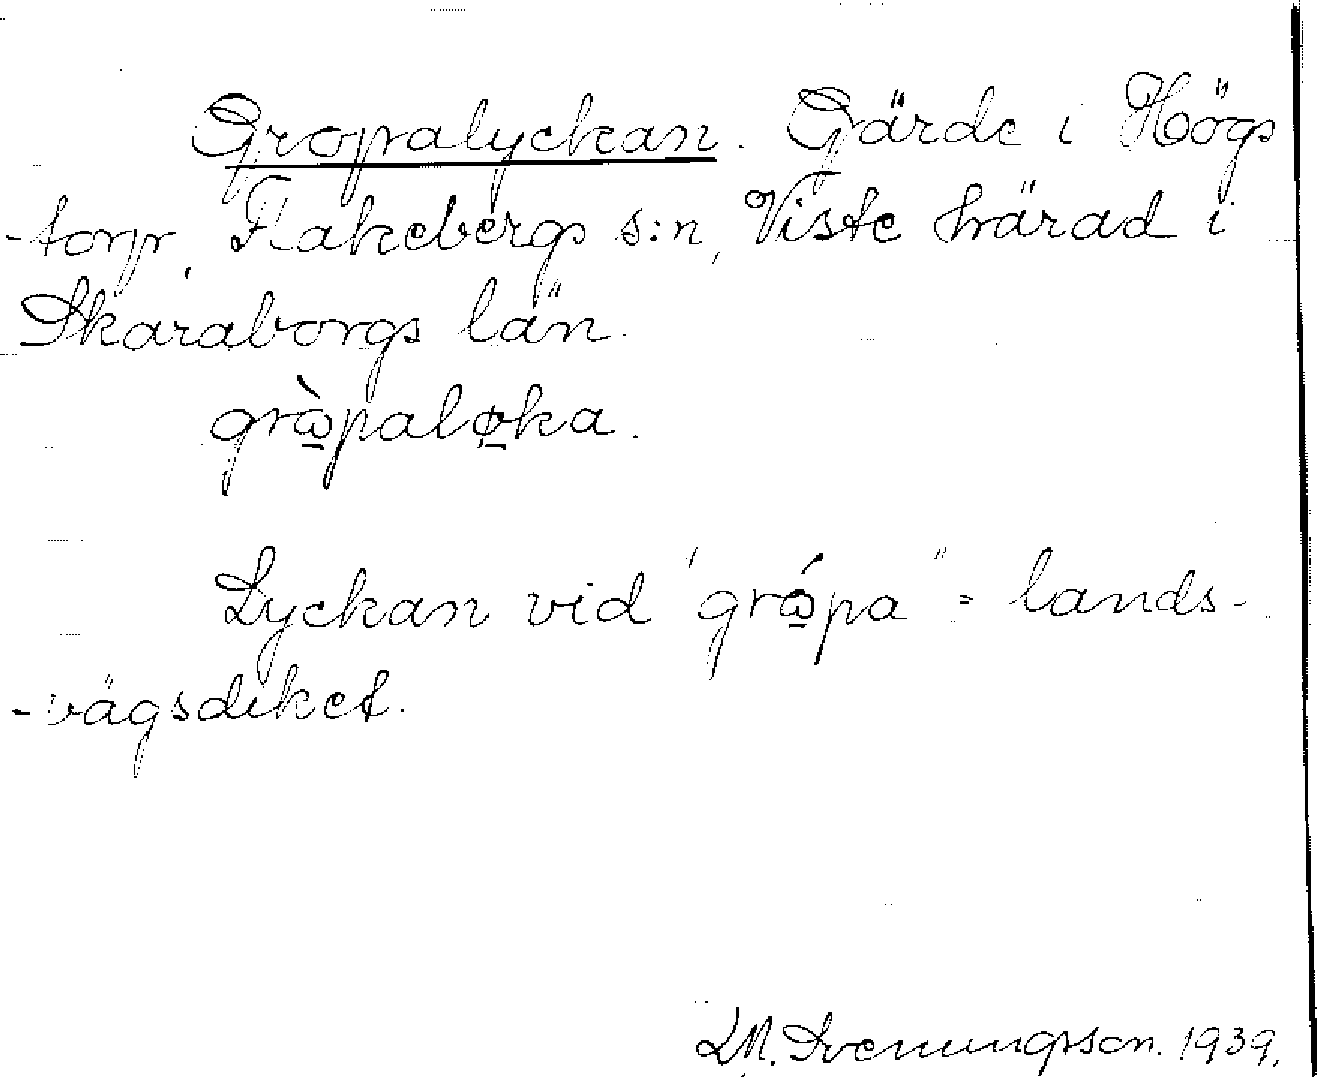 Gropalyckan. Gärde i Högs
-torp, Flakebergs s:n, Viste härad i
Skaraborgs län.
grɷ̠̀paløka.
Lyckan vid "grɷ̠́pa" = lands-
-vägsdiket.
L.M. Svenungsson. 1939.